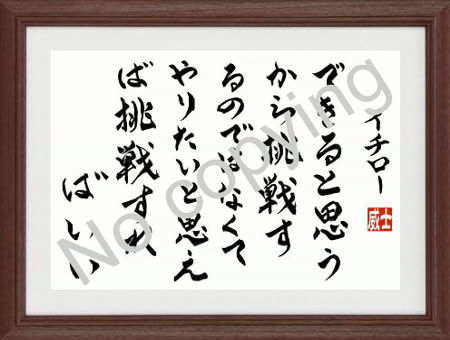 イチロー
できると思う
から挑戦す
るのではなくて
やりたいと思え
ば挑戦すれ
ばいい
威士
No copying